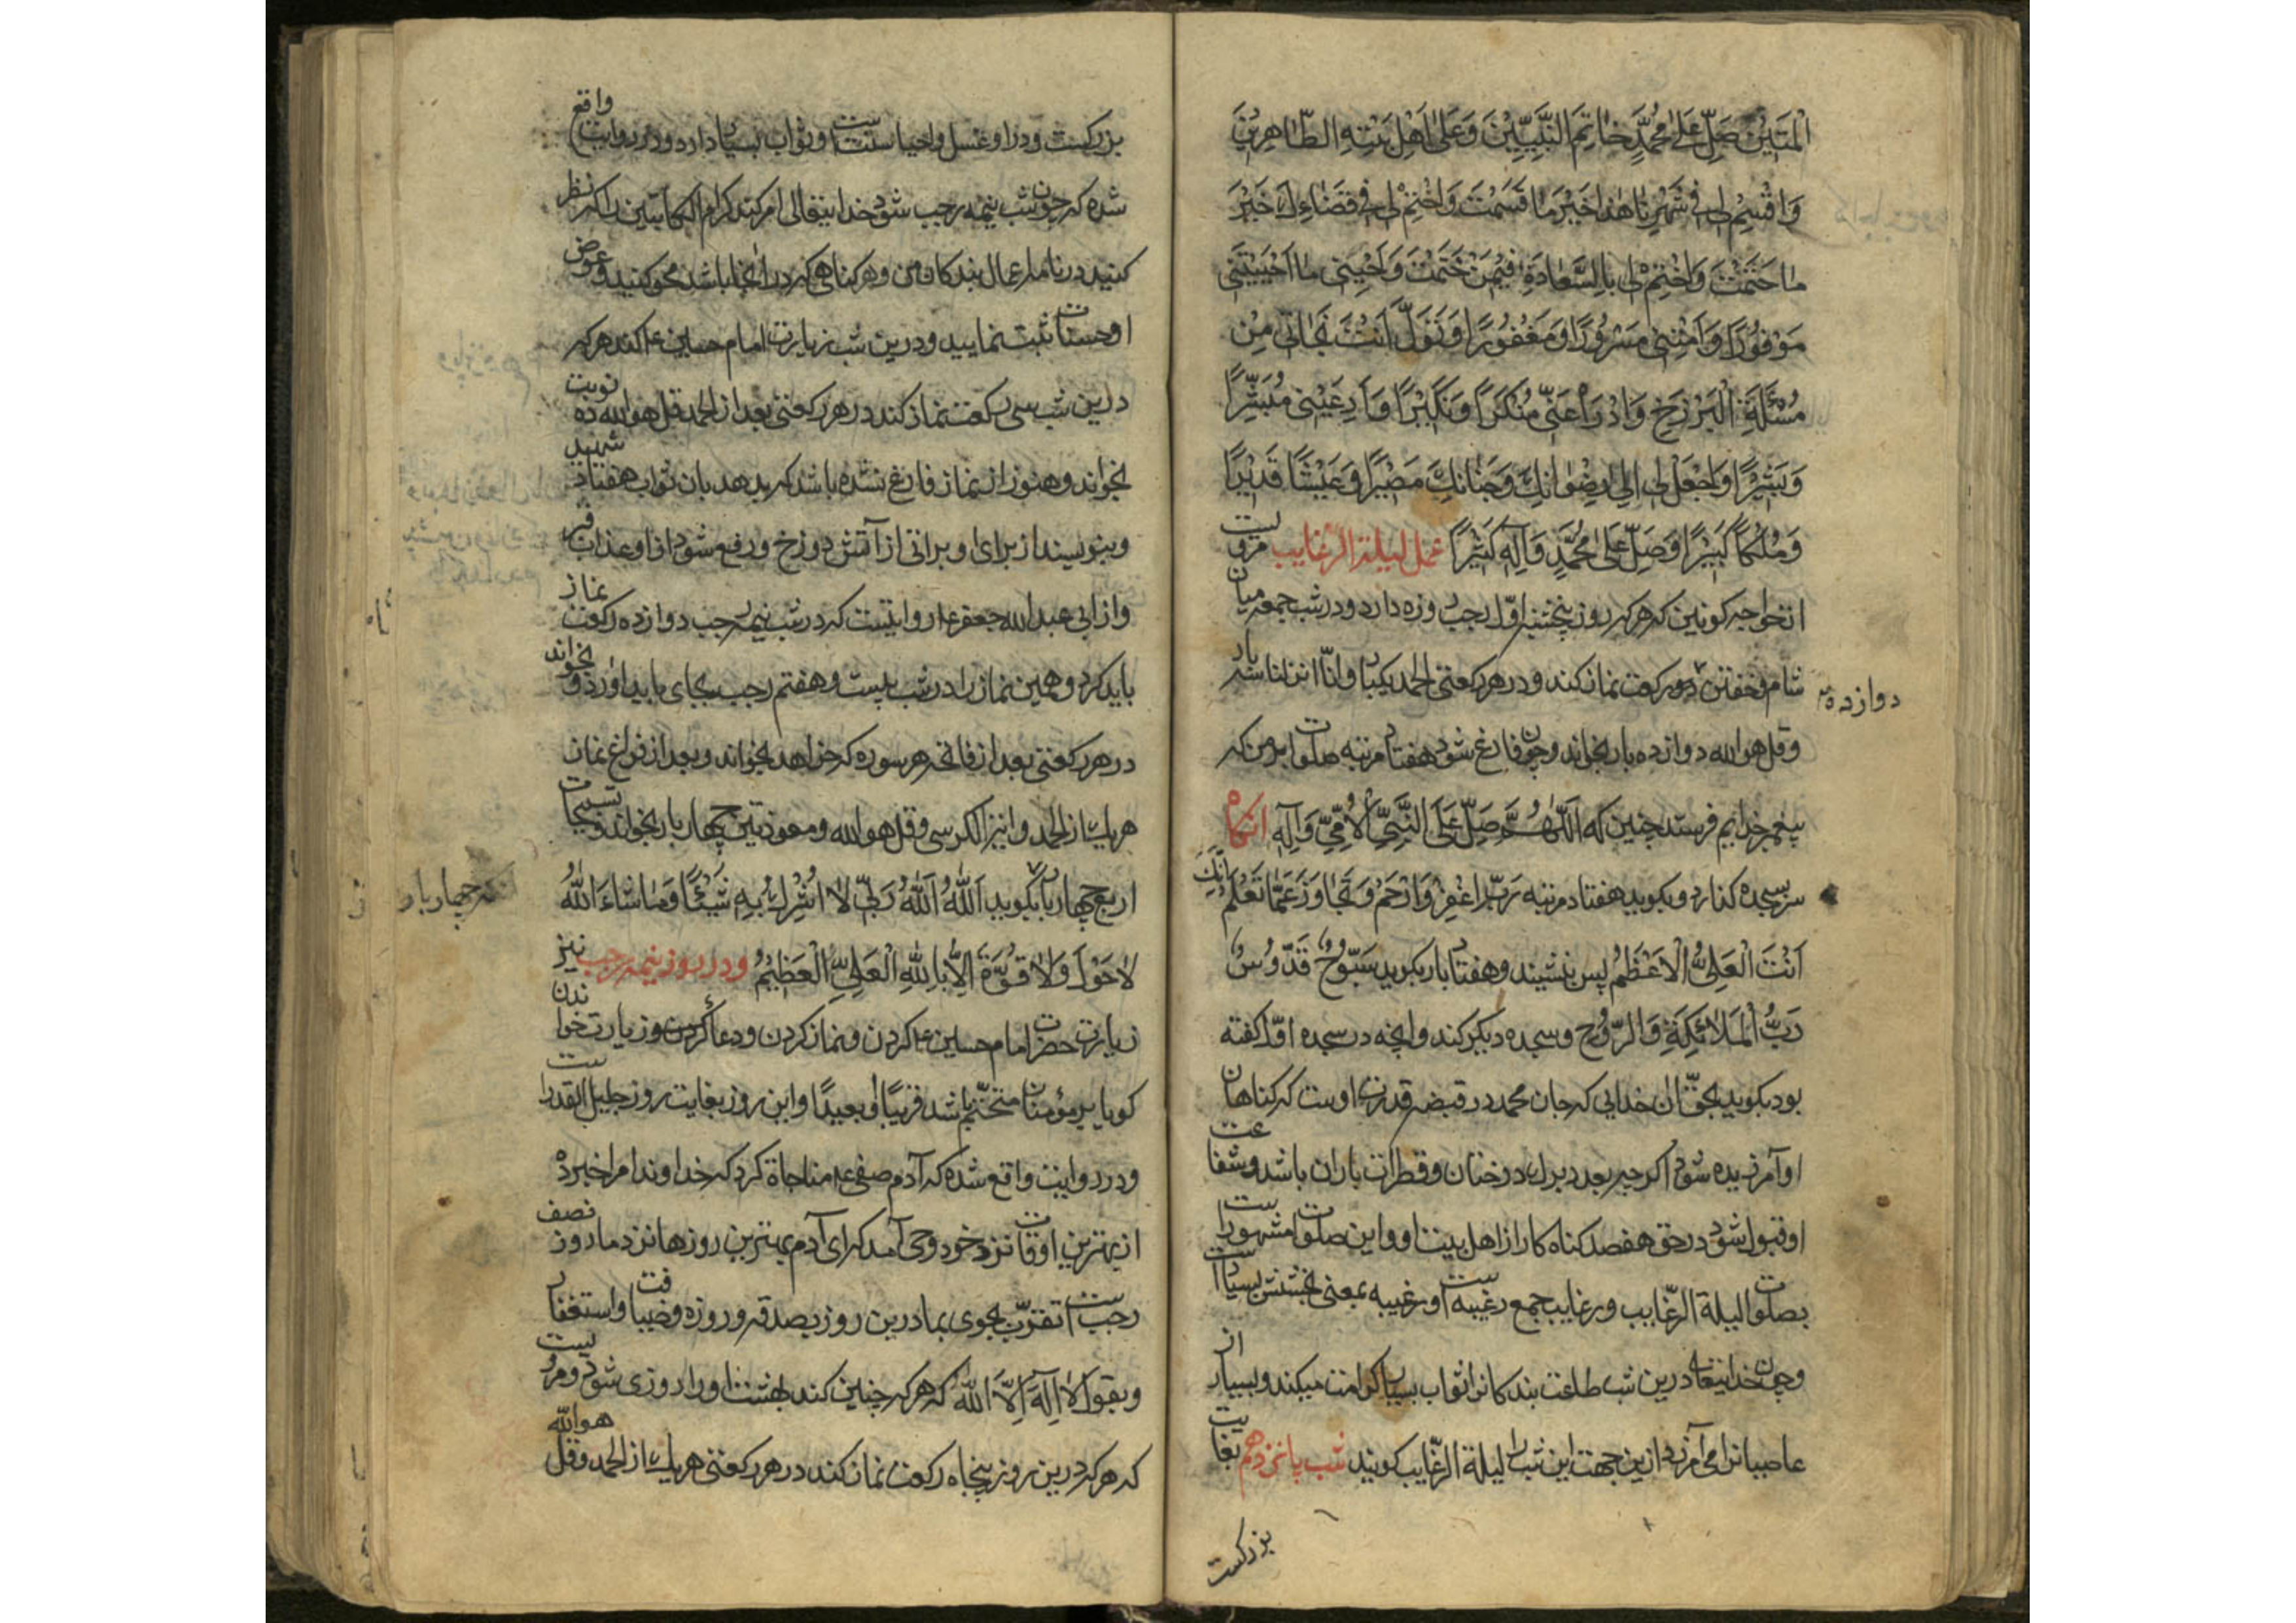 الْمَتِیْنُ صَلِّ عَلٰی مُحَمَّدٍ خٰاتِمَ النَّبِیِّیْنَ وَ عَلٰی اَهْلِ بَیْتِهِ الطّٰاهِرِیْنَ
وَ اقْسِمْ لٖی فٖی شَهْرِنٰا هٰذٰا خَیْرَ مٰا قَسَمْتَ وَ اخْتِمْ لٖی فٖی قَضٰاءِكَ خَیْرَ
مٰا حَتَمْتَ وَ اخْتِمْ لٖی بِالسَّعٰادَةِ فٖیْمَنْ خَتَمْتَ وَ اَحْیِنٖی مٰا اَحْیَیْتَنٖی
مَوْفُوْرًا وَ اَمِتْنٖی مَسْرُوْرًا وَ مَغْفُوْرًا وَ تَوَلَّ اَنْتَ نَجٰاتٖی مِنْ
مُسْئَلَةِ الْبَرْزَخِ وَ ادْرَأْ عَنّٖی مُنْكَرًا وَ نَكٖیْرًا وَ اَرِ عَیْنٖی مُبَشِّرًا
وَ بَشٖیْرًا وَ اجْعَلْ لٖی اِلٰی رِضْوٰانِكَ وَ جِنٰانِكَ مَصٖیْرًا وَ عَیْشًا قَرٖیْرًا
وَ مُلْكًا كَبٖیْرًا وَ صَلِّ عَلٰی مُحَمَّدٍ وَ اٰلِهٖ كَثٖیْرًا عمل لیلة الرغایب مرویست
از خواجه کونین که هر که روز پنجشنبه اوّل رجب روزه دارد و در شب جمعه میان
شام و خفتن رکعت نماز کند و در هر رکعتی الحمد یکبار و انّا انزلنا سه بار
دوازده
و قل هو الله دوازده بار بخواند و چون فارغ شود هفتاد مرتبه صلوات بر من که
پیغمبر خدایم فرستد چنین که اَللّٰهُمَّ صَلِّ عَلَی النَّبِیِّ الْاُمِّیِّ وَ اٰلِهٖ انکاه
سر بسجده کذارد و بکوید هفتاد مرتبه رَبِّ اغْفِرْ وَ ارْحَمْ وَ تَجٰاوَزْ عَمّٰا تَعْلَمُ اِنَّكَ
اَنْتَ الْعَلِیُّ الْاَعْظَمُ پس بنشیند و هفتاد بار بکوید سُبُّوْحٌ قُدُّوْسٌ
رَبُّ الْمَلٰائِكَةِ وَ الرُّوْحِ و سجده دیکر کند و انچه در سجده اوّل کفته
بود بکوید بحقّ ان خدایی که جان محمد در قبضه قدرت اوست که کناهان
او آمرزیده شود اکر چه بعدد برك درختان و قطرات باران باشد و شفاعت
او قبول شود در حق هفصد کناه کار از اهل بیت او و این صلوات مشهور است
بصلوات لیلة الرّغایب و رغایب جمع رغیبه است و رغیبه بمعنی بخشش بسیار است
و چون خدایتعالی درین شب طلعت بندکانرا ثواب بسیار کرامت میکند و بسیار از
عاصیانرا می آمرزد ازین جهت این شب را لیلة الرّغایب کویند شب پانزدهم بغایت
بزرکست
بزرکست و در او غسل و احیا سنت است و ثواب بسیار دارد و در روایت واقع
شده که چون شب نیمه رجب شود خدایتعالی امر کند کرام الکاتبین را که نظر
کنید در نامه اعمال بندکان من و هر کناهی که در انجا باشد محو کنید و عوض
او حسنات ثبت نمایید و درین شب زیارت امام حسین ع کند هر که
درین شب سی رکعت نماز کند در هر رکعتی بعد از الحمد قل هو الله ده نوبت
بخواند و هنوز از نماز فارغ نشده باشد که بدهد بان ثواب هفتاد شهید
و بنویسند از برای او براتی از آتش دوزخ و رفع شود از او عذاب قبر
و از ابی عبد الله جعفر ع روایتست که در شب نیمه رجب دوازده رکعت نماز
باید کرد و همین نماز را در شب بیست و هفتم رجب بجای باید آورد و بخواند
در هر رکعتی بعد از فاتحه هر سوره که خواهد بخواند و بعد از فراغ نماز
هر یك از الحمد و ایة الکرسی و قل هو الله و معوذتین چهار بار بخواند و تسبیحات
اربع چهار بار بکوید اَللهُ اَللهُ رَبّٖی لٰا اُشْرِكُ بِهٖ شَیْئًا وَ مٰا شٰاءَ اللهُ
که چهار بار
لٰا حَوْلَ وَ لٰا قُوَّةَ اِلّٰا بِاللهِ الْعَلِیِّ الْعَظٖیْمُ و در روز نیمه رجب نیز
زیارت حضرت امام حسین ع کردن و نماز کردن و دعا کردن و زیارت خواندن
کویا بر مؤمنان متحتّم باشد قریبًا و بعیدًا و این روز بغایت روز جلیل القدر است
و در روایت واقع شده که آدم صفی ع مناجاة کرد که خداوندا مرا خبر ده
از بهترین اوقات نزد خود وحی آمد که ای آدم بهترین روزها نزد ما روز نصف
رجب است تقرّب بجوی بما درین روز بصدقه و روزه و ضیافت و استغفار
و بقول لٰا اِلٰهَ اِلَّا اللهُ که هر که چنین کند بهشت او را روزی شود و مرویست
که هر که درین روز پنجاه رکعت نماز کند در هر رکعتی هر یك از الحمد و قل هو الله